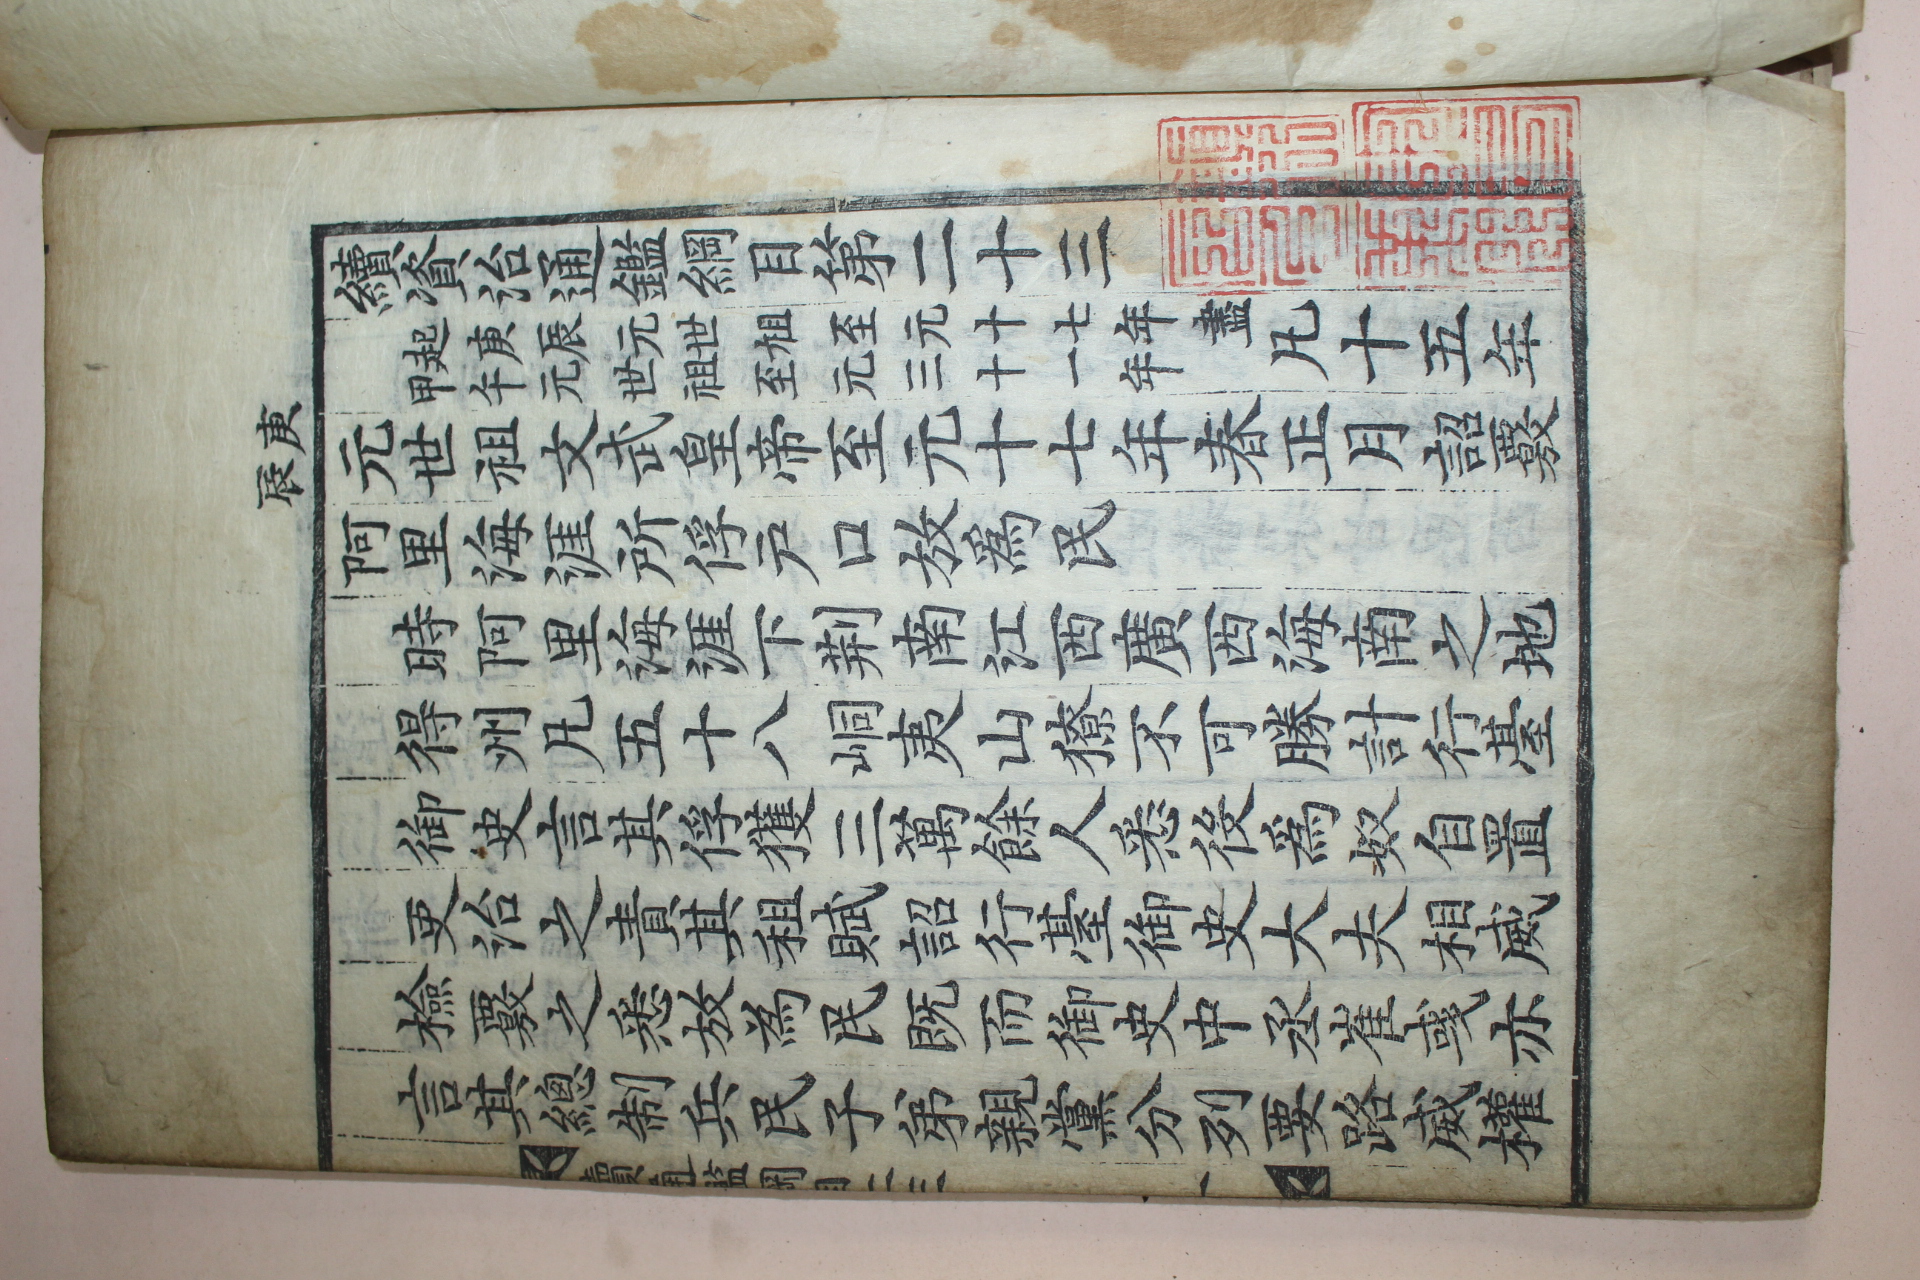 續資治通鑑綱目第二十三
起庚辰元世祖至元十七年盡
甲午元世祖至元三十一年
凡十五年
庚辰
元世祖文武皇帝至元十七年春正月詔覈
阿里海涯所俘戶口放爲民
時阿里海涯下荆南江西廣西海南之地
得州凡五十八峒夷山獠不可勝計行臺
御史言其俘獲三萬餘人悉役爲奴自置
吏治之責其租賦詔行臺御史大夫相威
檢覈之悉放爲民既而御史中丞崔彧亦
言其總制兵民子弟親黨分列要路威權